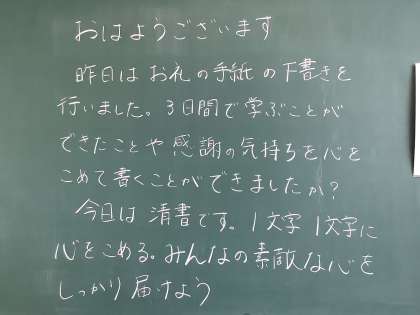 おはようございます
昨日は お礼の手紙の下書きを
行いました。3日間で学ぶことが
できたことや感謝の気持ちを心を
こめて書くことができましたか?
今日は 清書です。1文字 1文字に
心をこめる。みんなの素敵な心を
しっかり届けよう